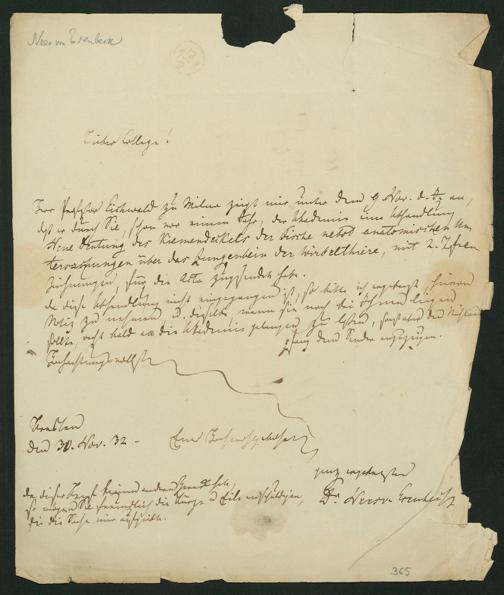 Nees von Esenbeck
Lieber College!
Herr Professor Eichwald zu Wilna zeigt mir unter dem 9 Nov. d. J. an,
daß er durch Sie, schon vor einem Jahr, der Akademie eine Abhandlung
Neue Deutung des Kiemendeckels der Fische nebst anatomischen Un
tersuchungen über das Zungenbein der Wirbelthiere, mit 2. Tafeln
Zeichnungen, für die Acta zugesendet habe.
Da diese Abhandlung nicht eingegangen ist, so bitte ich ergebenst, hievon
Notiz zu nehmen u. dieselbe, wenn sie noch bei Ihnen liegen
sollte, recht bald an die Akademie gelangen zu lassen,
dem Sender anzuzeigen.
Hochachtungsvollst
Breslau
den 30. Nov. 32 -
Euer Hochwohlgeboren
ganz ergebenster
Dr Nees v. Esenbeck
da dieser Brief keinen andern Zweck hat,
so mögen Sie freundlich die Kürze u. Eile entschuldigen,
die die Sache mir
365